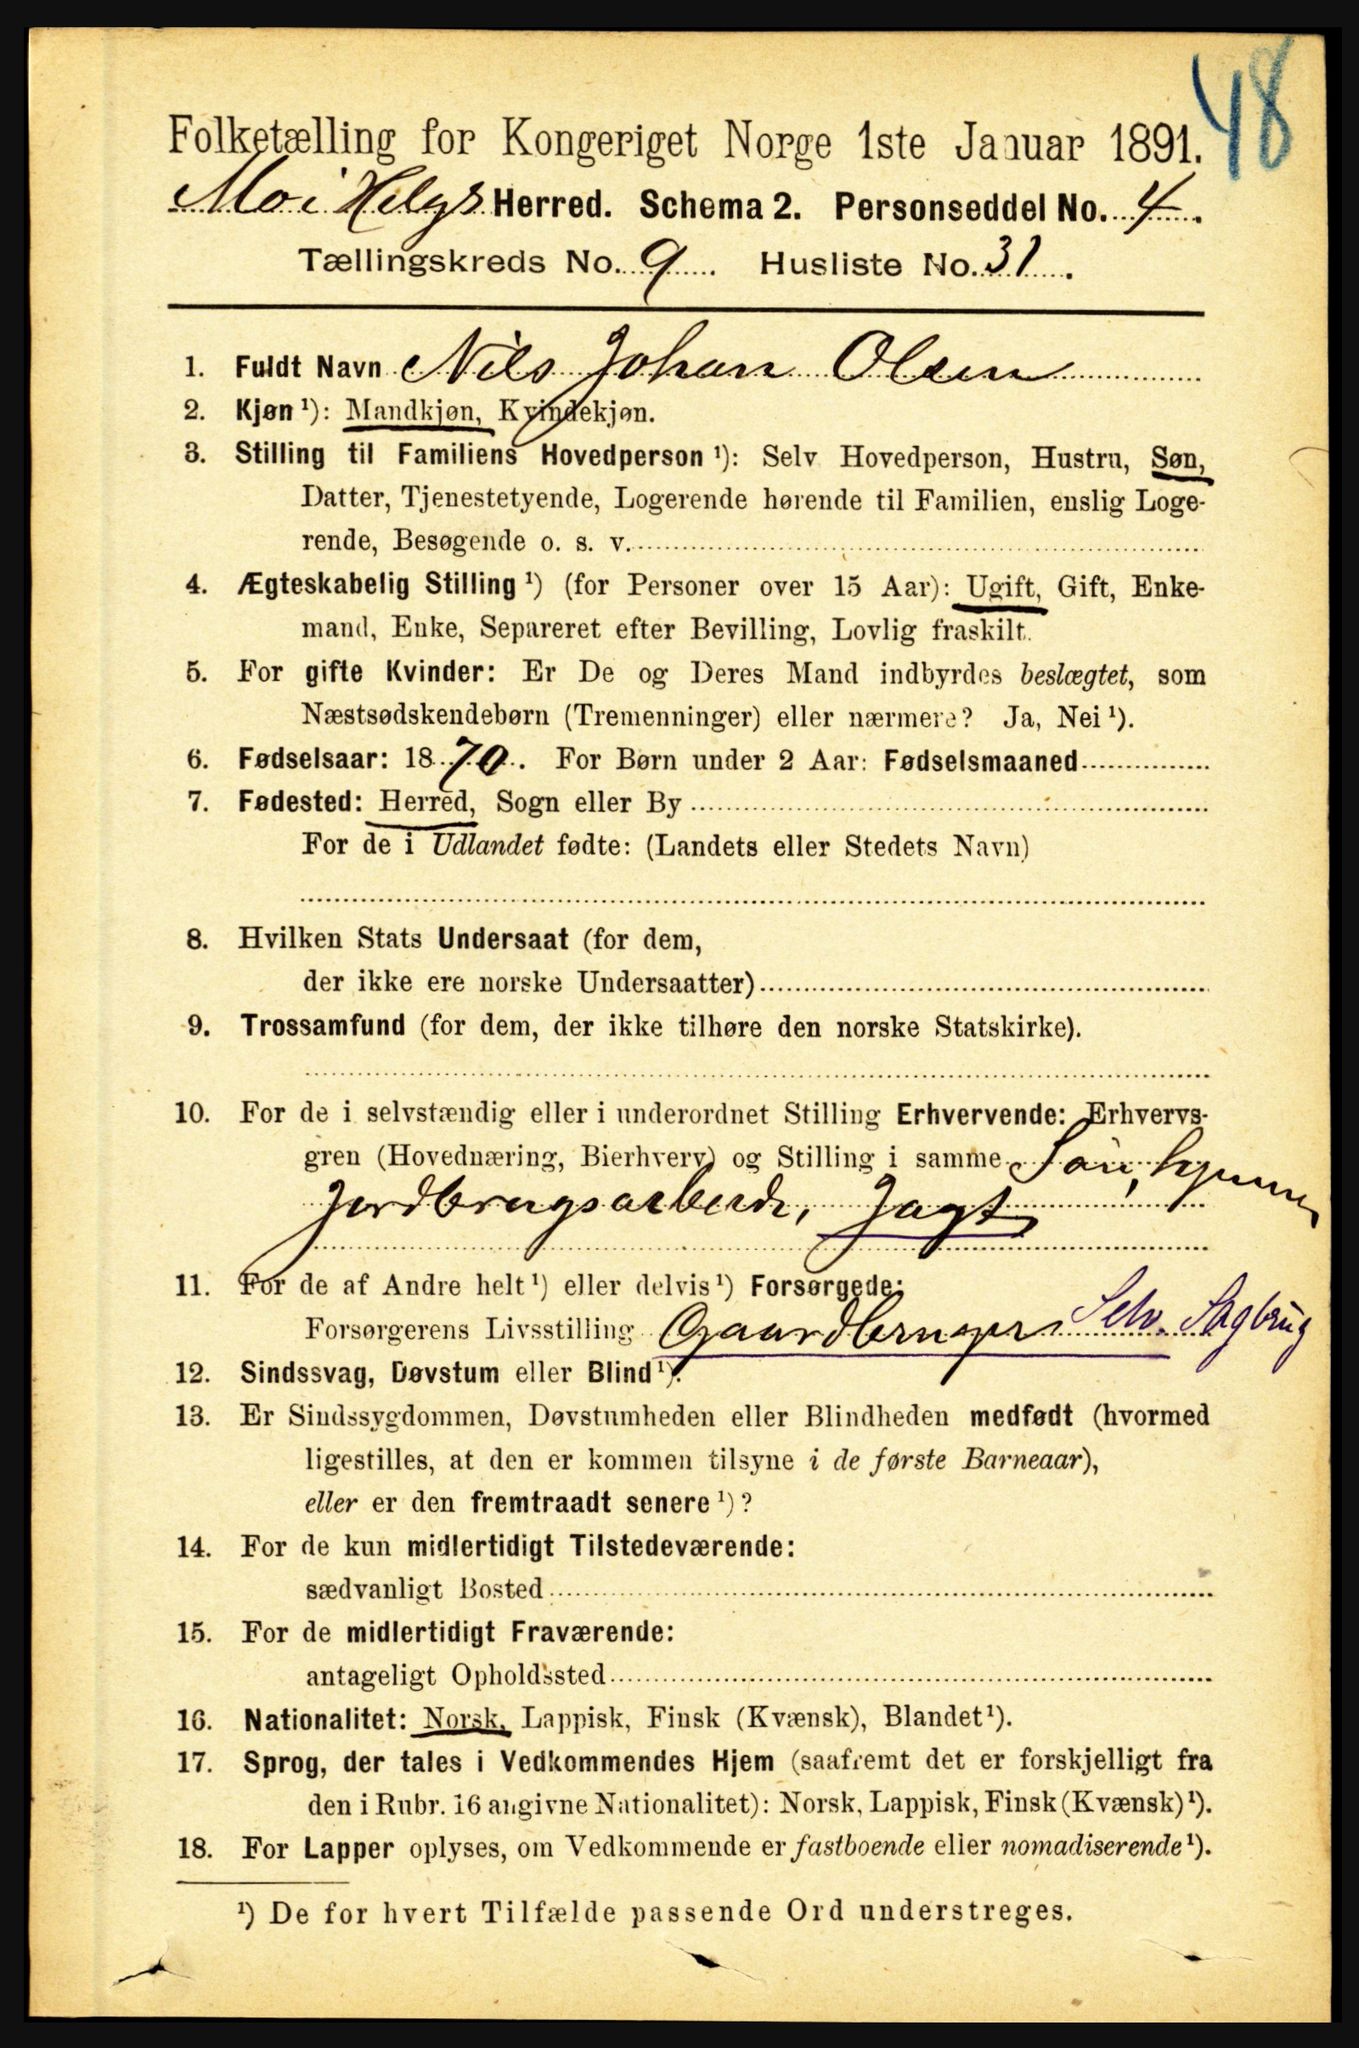 48
Folketælling for Kongeriget Norge 1ste Januar 1891.
Mo i Helgs Herred. Schema 2. Personseddel No. 4.
Tællingskreds No. 9. Husliste No. 31.
1. Fuldt Navn Nils Johan Olsen
2. Kjøn ¹): Mandkjøn, Kvindekjøn.
3. Stilling til Familiens Hovedperson ¹): Selv Hovedperson, Hustru, Søn,
Datter, Tjenestetyende, Logerende hørende til Familien, enslig Loge-
rende, Besøgende o. s. v.
4. Ægteskabelig Stilling ¹) (for Personer over 15 Aar): Ugift, Gift, Enke-
mand, Enke, Separeret efter Bevilling, Lovlig fraskilt.
5. For gifte Kvinder: Er De og Deres Mand indbyrdes beslægtet, som
Næstsødskendebørn (Tremenninger) eller nærmere? Ja, Nei ¹).
6. Fødselsaar: 1870. For Børn under 2 Aar: Fødselsmaaned
7. Fødested: Herred, Sogn eller By
For de i Udlandet fødte: (Landets eller Stedets Navn)
8. Hvilken Stats Undersaat (for dem,
der ikke ere norske Undersaatter)
9. Trossamfund (for dem, der ikke tilhøre den norske Statskirke).
10. For de i selvstændig eller i underordnet Stilling Erhvervende: Erhvervs-
gren (Hovednæring, Bierhverv) og Stilling i samme Søn,
Jordbrugsarbeide, Jagt
11. For de af Andre helt ¹) eller delvis ¹) Forsørgede:
Forsørgerens Livsstilling Gaardbruger Selv. Sagbrug
12. Sindssvag, Døvstum eller Blind ¹).
13. Er Sindssygdommen, Døvstumheden eller Blindheden medfødt (hvormed
ligestilles, at den er kommen tilsyne i de første Barneaar),
eller er den fremtraadt senere ¹)?
14. For de kun midlertidigt Tilstedeværende:
sædvanligt Bosted
15. For de midlertidigt Fraværende:
antageligt Opholdssted
16. Nationalitet: Norsk, Lappisk, Finsk (Kvænsk), Blandet ¹).
17. Sprog, der tales i Vedkommendes Hjem (saafremt det er forskjelligt fra
den i Rubr. 16 angivne Nationalitet): Norsk, Lappisk, Finsk (Kvænsk) ¹).
18. For Lapper oplyses, om Vedkommende er fastboende eller nomadiserende ¹).
¹) De for hvert Tilfælde passende Ord understreges.